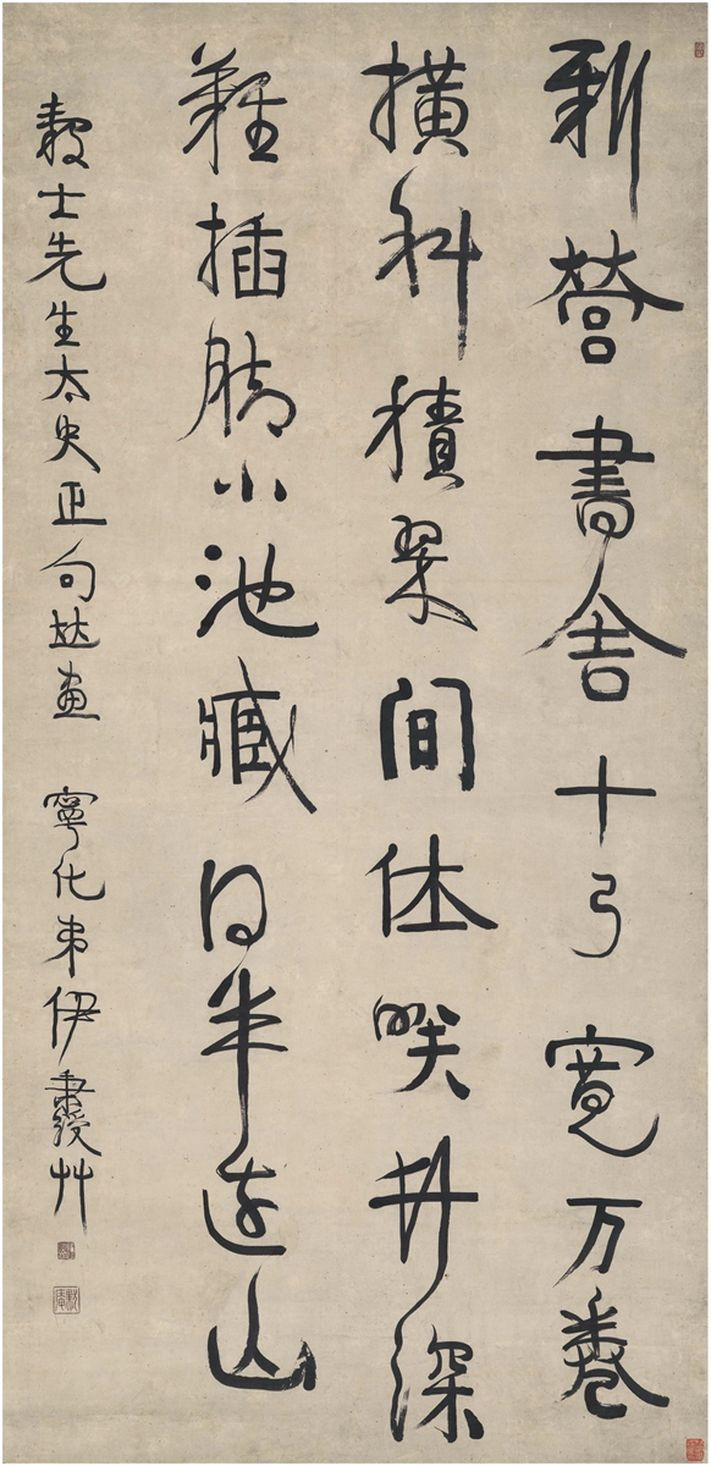 新營書舍十弓寬万卷
橫斜積翠間休咲井深
難插脚小池藏得半邊山
穀士先生太史正句並畫 寧化弟伊秉綬艸